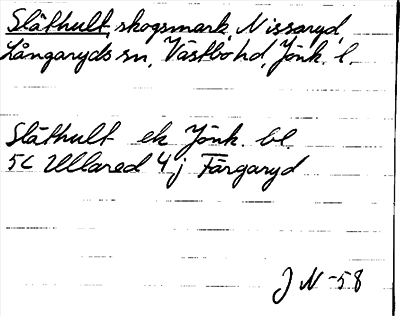 Slåthult, skogsmark, Nissaryd,
Långaryds sn, Västbo hd, Jönk. l.
Slåthult ek Jönk. bl.
5C Ullared 4j Färgaryd
J N -58